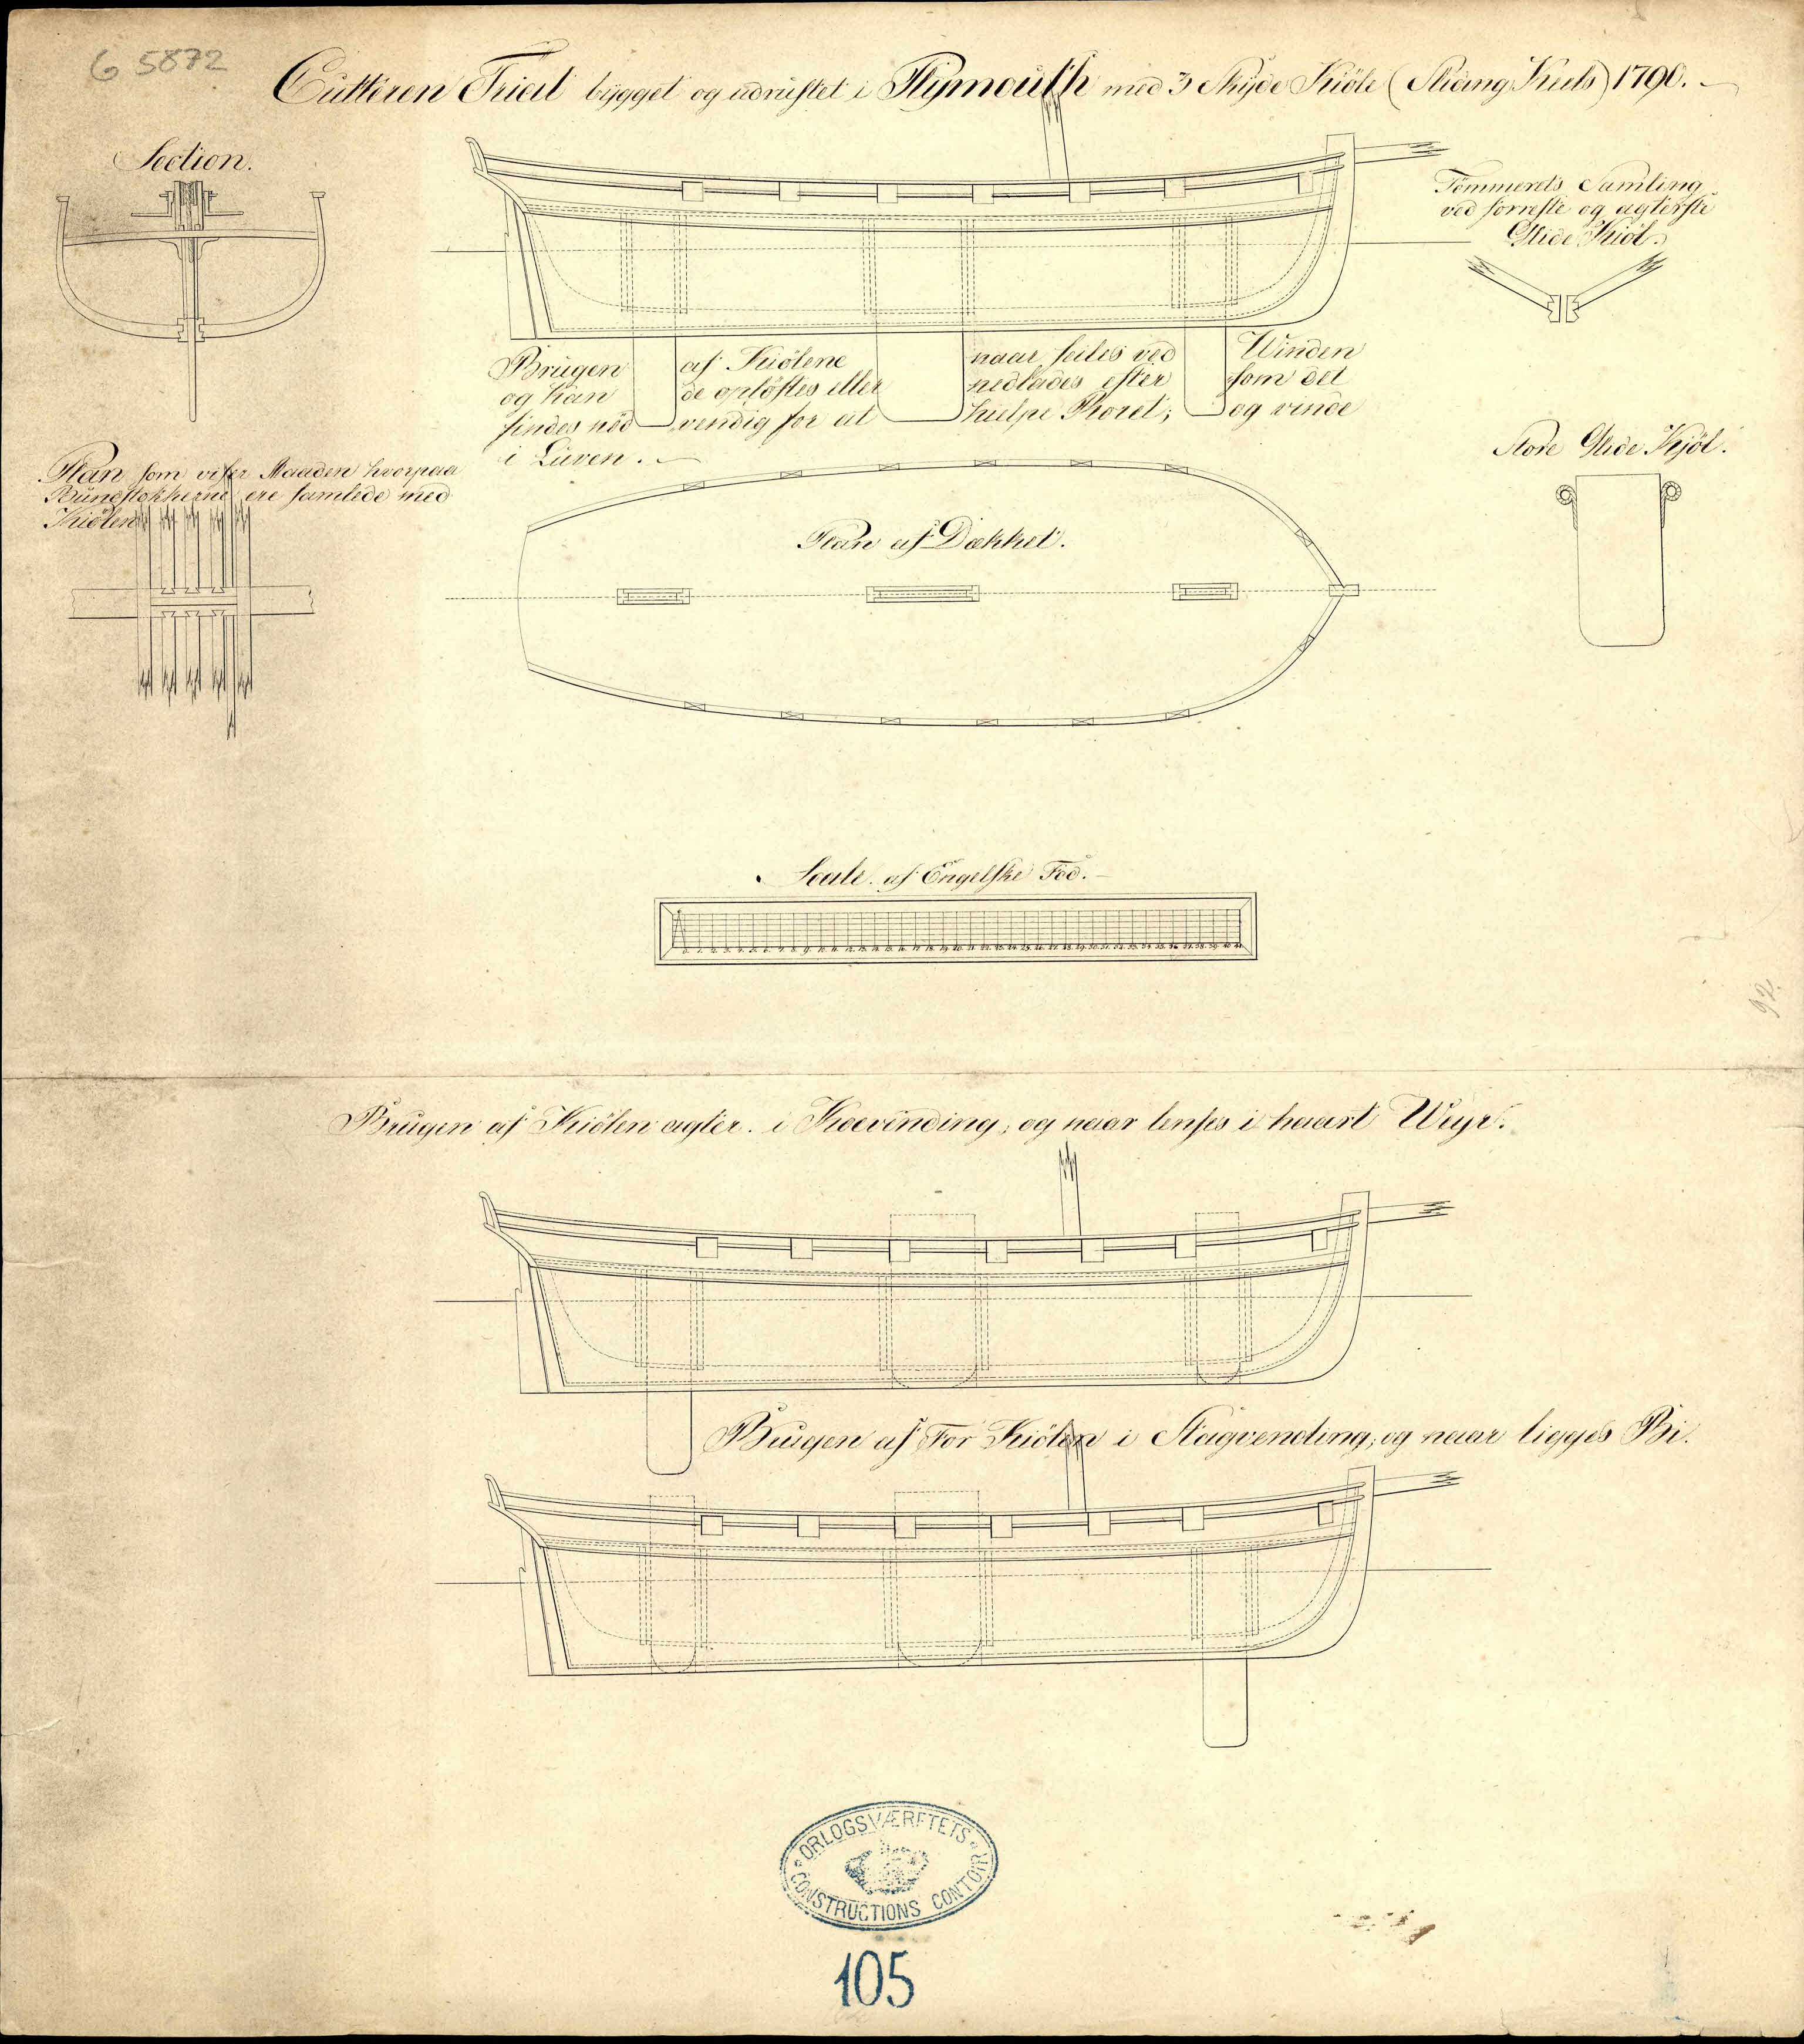 G 5872
Cutteren Trial bÿgget og udrustet i Plÿmouth med 3 Skÿde Kiöle (Sliding Keels) 1790.
Section.
Tömmerets Samling
ved forreste og agterste
Glide Kiöl.
Brugen af Kiölene naar seiles ved Winden
og kan de oplöftes eller nedlades efter som det
findes nödvendig for at hielpe Roret; og vinde
i Luven.
Store Glide Kjöl.
Plan som viser Maaden hvorpaa
Bundstokkerne ere samlede med
Kiölen
Plan af Dækket.
Scale af Engelske Fod.
0. 1. 2. 3. 4. 5. 6. 7. 8. 9. 10. 11. 12. 13. 14. 15. 16. 17. 18. 19. 20. 21. 22. 23. 24. 25. 26. 27. 28. 29. 30. 31. 32. 33. 34. 35. 36. 37. 38. 39. 40. 41.
92.
Brugen af Kiölen agter i Kovending, og naar lenses i haart Weyr.
Brugen af For Kiölen i Stagvending, og naar ligges Bi.
ORLOGSVÆRFTETS
CONSTRUCTIONS CONTOIR
105